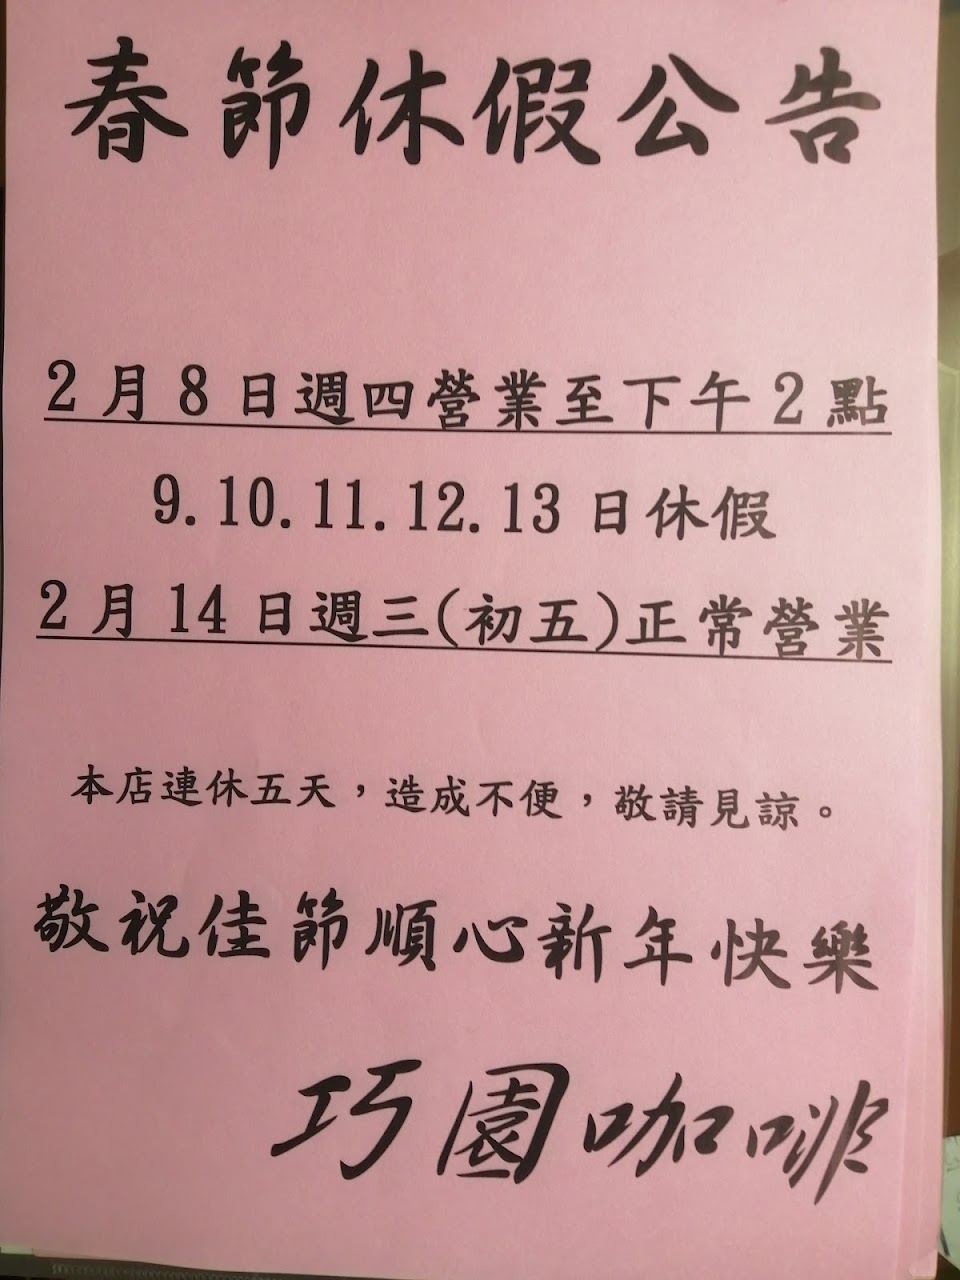 春節休假公告
2月8日週四營業至下午2點
9.10.11.12.13日休假
2月14日週三(初五)正常營業
本店連休五天，造成不便，敬請見諒。
敬祝佳節順心新年快樂
巧園咖啡